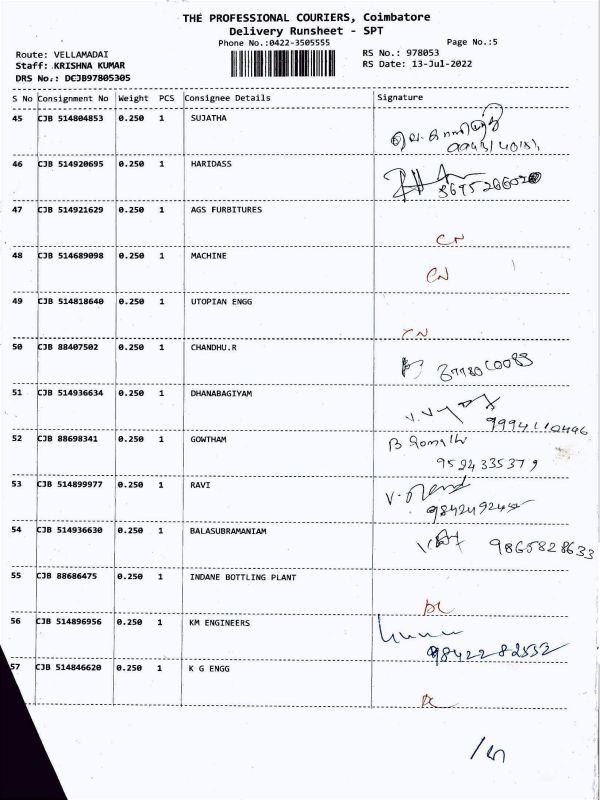 THE PROFESSIONAL COURIERS, Coimbatore
Delivery Runsheet - SPT
Phone No.:0422-3505555 Page No.:5
Route: VELLAMADAI RS No.: 978053
Staff: KRISHNA KUMAR RS Date: 13-Jul-2022
DRS No.: DCJB97805305
S No Consignment No Weight PCS Consignee Details Signature
45 CJB 514804853 0.250 1 SUJATHA
46 CJB 514920695 0.250 1 HARIDASS
47 CJB 514921629 0.250 1 AGS FURBITURES
CN
48 CJB 514689098 0.250 1 MACHINE
CN
49 CJB 514818640 0.250 1 UTOPIAN ENGG
CN
50 CJB 88407502 0.250 1 CHANDHU.R
51 CJB 514936634 0.250 1 DHANABAGIYAM
52 CJB 88698341 0.250 1 GOWTHAM
9524335379
53 CJB 514899977 0.250 1 RAVI
54 CJB 514936630 0.250 1 BALASUBRAMANIAM
9865828633
55 CJB 88686475 0.250 1 INDANE BOTTLING PLANT
DL
56 CJB 514896956 0.250 1 KM ENGINEERS
9842282532
57 CJB 514846620 0.250 1 K G ENGG